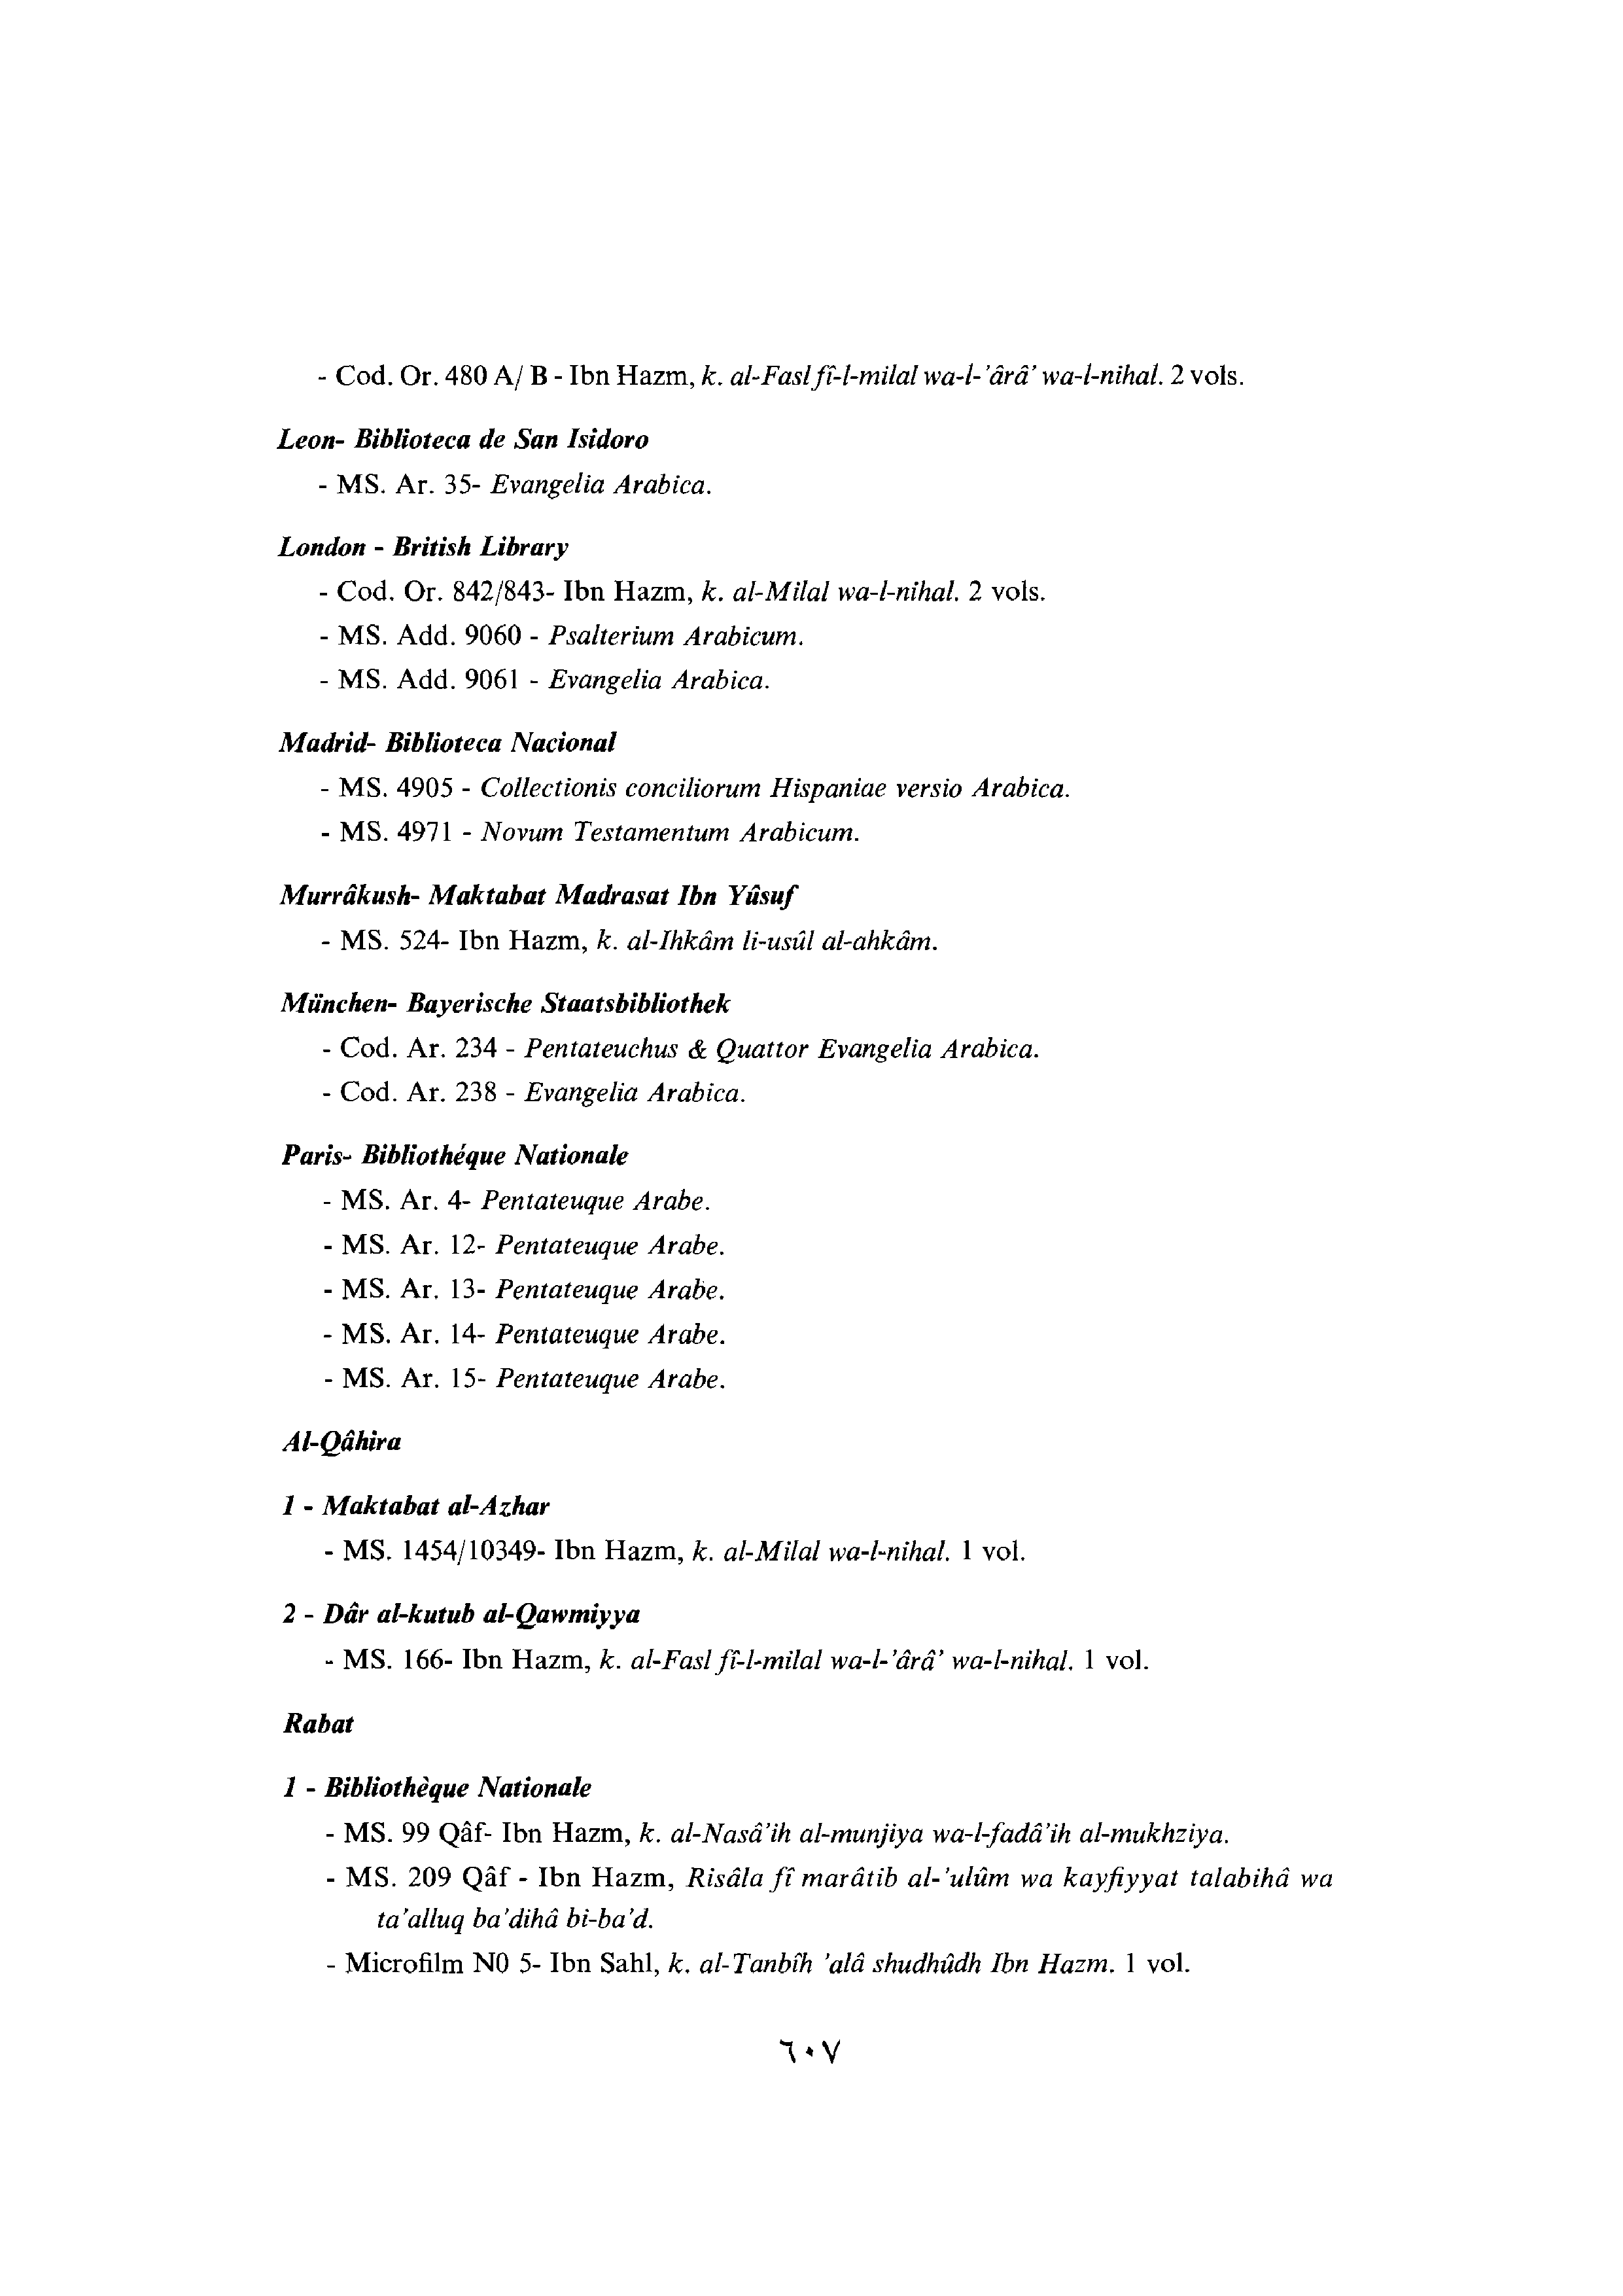 - Cod. Or. 480 A/ B - Ibn Hazm, k. al-Fasl fî-l-milal wa-l-'ârâ' wa-l-nihal. 2 vols.
Leon- Biblioteca de San Isidoro
- MS. Ar. 35- Evangelia Arabica.
London - British Library
- Cod. Or. 842/843- Ibn Hazm, k. al-Milal wa-l-nihal. 2 vols.
- MS. Add. 9060 - Psalterium Arabicum.
- MS. Add. 9061 - Evangelia Arabica.
Madrid- Biblioteca Nacional
- MS. 4905 - Collectionis conciliorum Hispaniae versio Arabica.
- MS. 4971 - Novum Testamentum Arabicum.
Murrâkush- Maktabat Madrasat Ibn Yûsuf
- MS. 524- Ibn Hazm, k. al-Ihkâm li-usûl al-ahkâm.
München- Bayerische Staatsbibliothek
- Cod. Ar. 234 - Pentateuchus & Quattor Evangelia Arabica.
- Cod. Ar. 238 - Evangelia Arabica.
Paris- Bibliothéque Nationale
- MS. Ar. 4- Pentateuque Arabe.
- MS. Ar. 12- Pentateuque Arabe.
- MS. Ar. 13- Pentateuque Arabe.
- MS. Ar. 14- Pentateuque Arabe.
- MS. Ar. 15- Pentateuque Arabe.
Al-Qâhira
1 - Maktabat al-Azhar
- MS. 1454/10349- Ibn Hazm, k. al-Milal wa-l-nihal. 1 vol.
2 - Dâr al-kutub al-Qawmiyya
- MS. 166- Ibn Hazm, k. al-Fasl fî-l-milal wa-l-'ârâ' wa-l-nihal. 1 vol.
Rabat
1 - Bibliothèque Nationale
- MS. 99 Qâf- Ibn Hazm, k. al-Nasâ'ih al-munjiya wa-l-fadâ'ih al-mukhziya.
- MS. 209 Qâf - Ibn Hazm, Risâla fî marâtib al-'ulûm wa kayfiyyat talabihâ wa
ta'alluq ba'dihâ bi-ba'd.
- Microfilm N0 5- Ibn Sahl, k. al-Tanbîh 'alâ shudhûdh Ibn Hazm. 1 vol.
٦٠٧